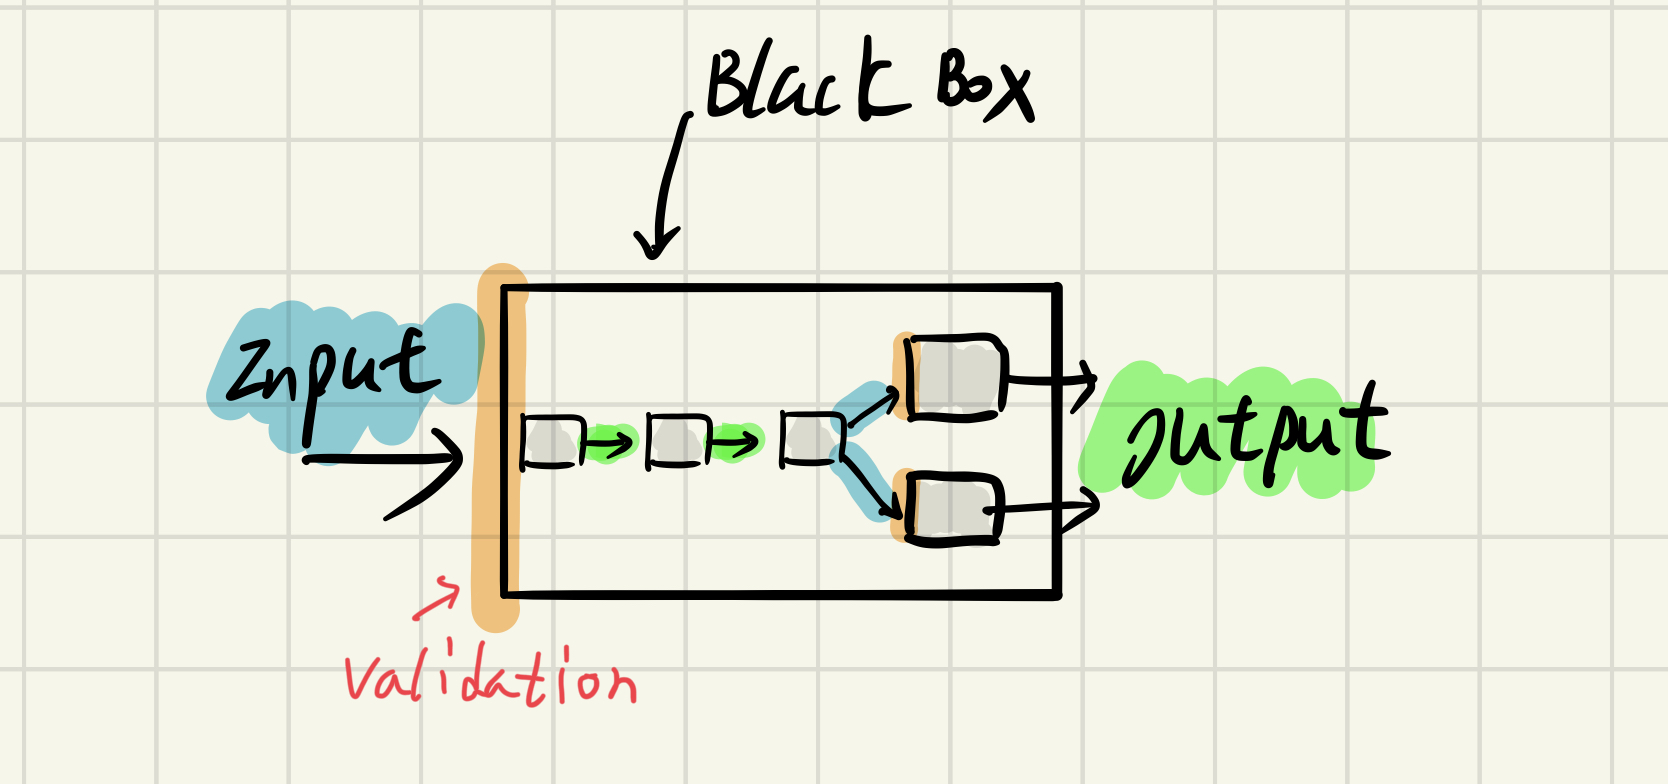 Black Box
Input
Output
Validation